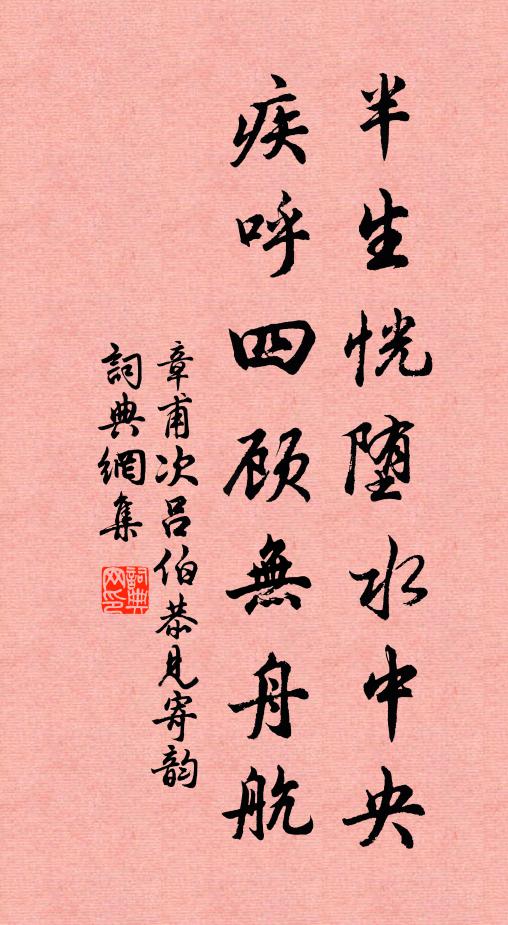 半生恍堕水中央
疾呼四顾無舟航
章甫次吕伯恭見寄韵
詞典網集
詞典网印